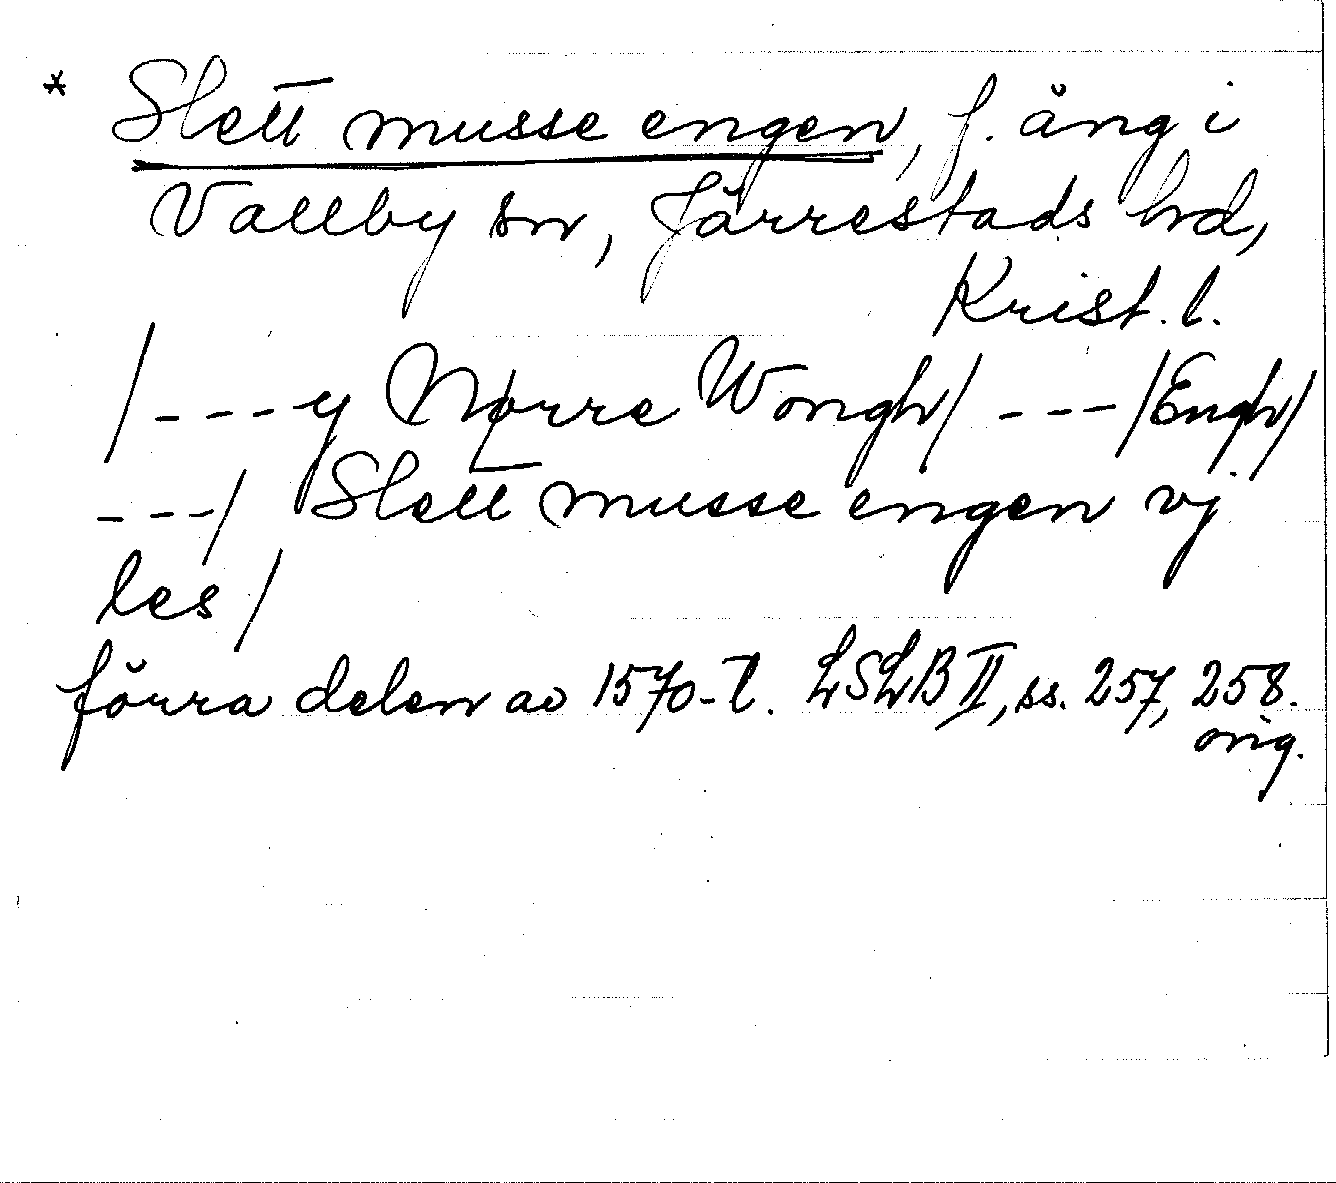 * Slett musse engen, f. äng i
Vallby sn, Järrestads hd,
Krist. l.
/---y Nørre Wongh/ ---/Engh/
---/ Slett musse engen vj
les/
förra delen av 1570-t. LSLB II, ss. 257, 258.
orig.